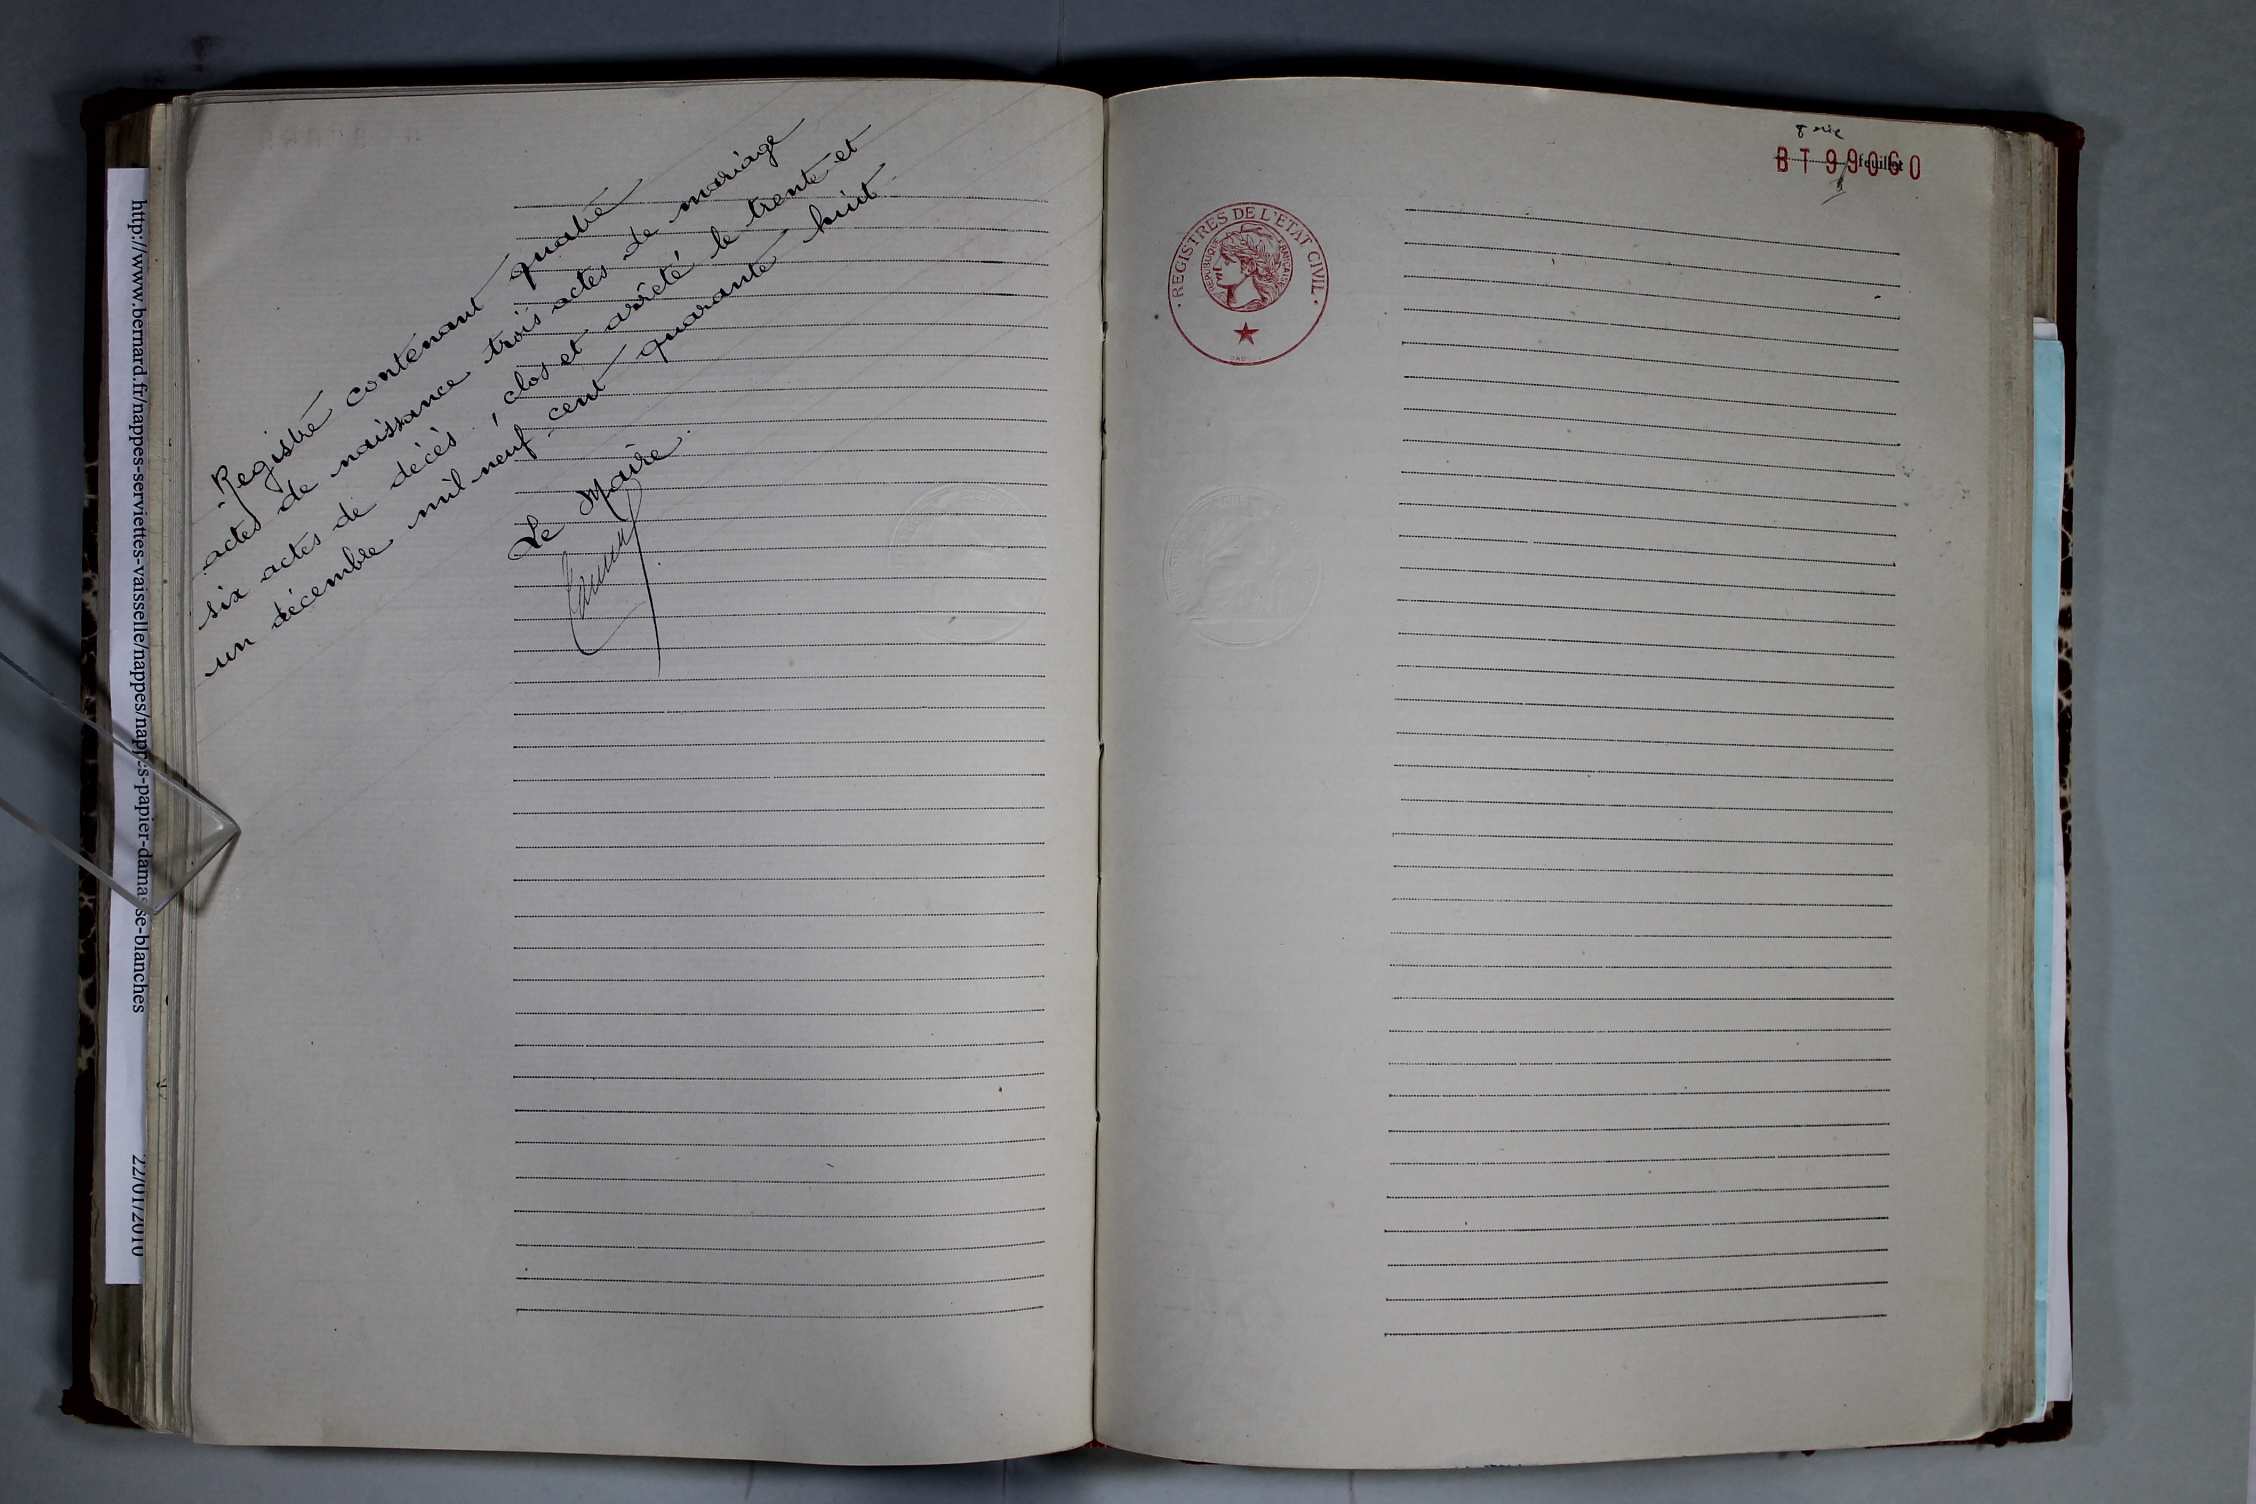 Registre contenant quatre
actes de naissance trois actes de mariage
six actes de décès, clos et arrêté le trente et
un décembre mil neuf cent quarante huit
Le Maire.
http://www.bernard.fr/nappes-serviettes-vaisselle/nappes/nappes-papier-damasse-blanches
22/01/2010
BT 99060
feuillet
REGISTRES DE L'ETAT CIVIL
REPUBLIQUE FRANCAISE